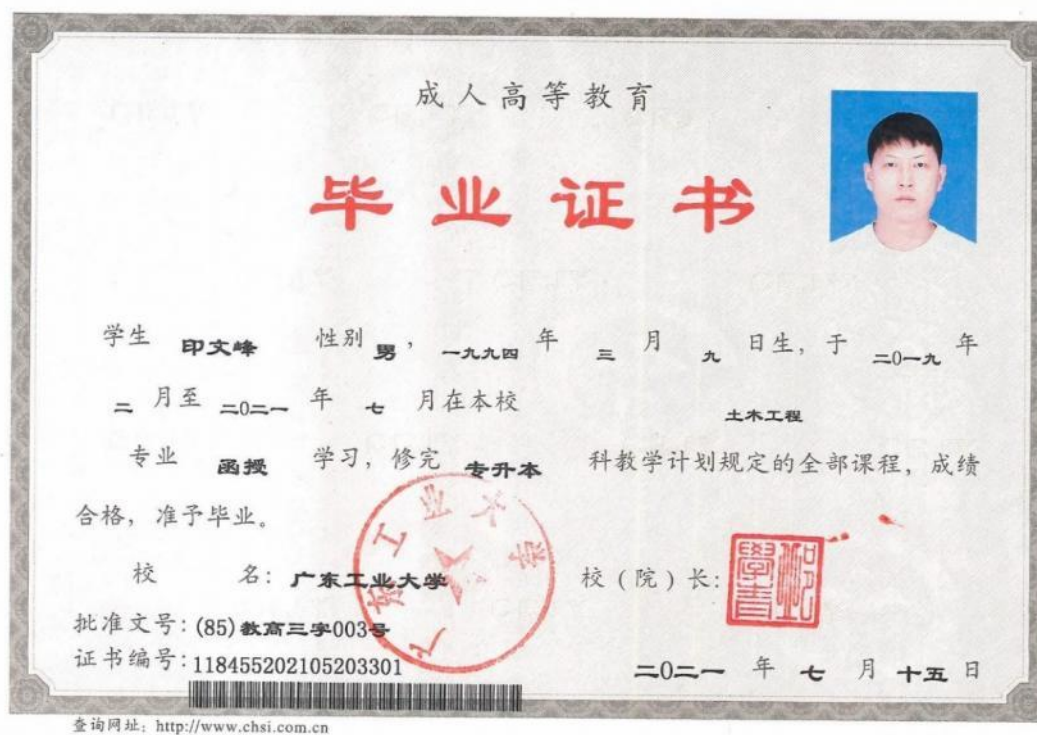 成人高等教育
毕业证书
学生 印文峰 性别 男，一九九四 年 三 月 九 日生，于 二0一九 年
二 月至 二0二一 年 七 月在本校 土木工程
专业 函授 学习，修完 专升本 科教学计划规定的全部课程，成绩
合格，准予毕业。
广东工业大学
校 名：广东工业大学 校（院）长：
批准文号：(85)教高三字003号
证书编号：118455202105203301
二0二一 年 七 月 十五 日
查询网址：http://www.chsi.com.cn